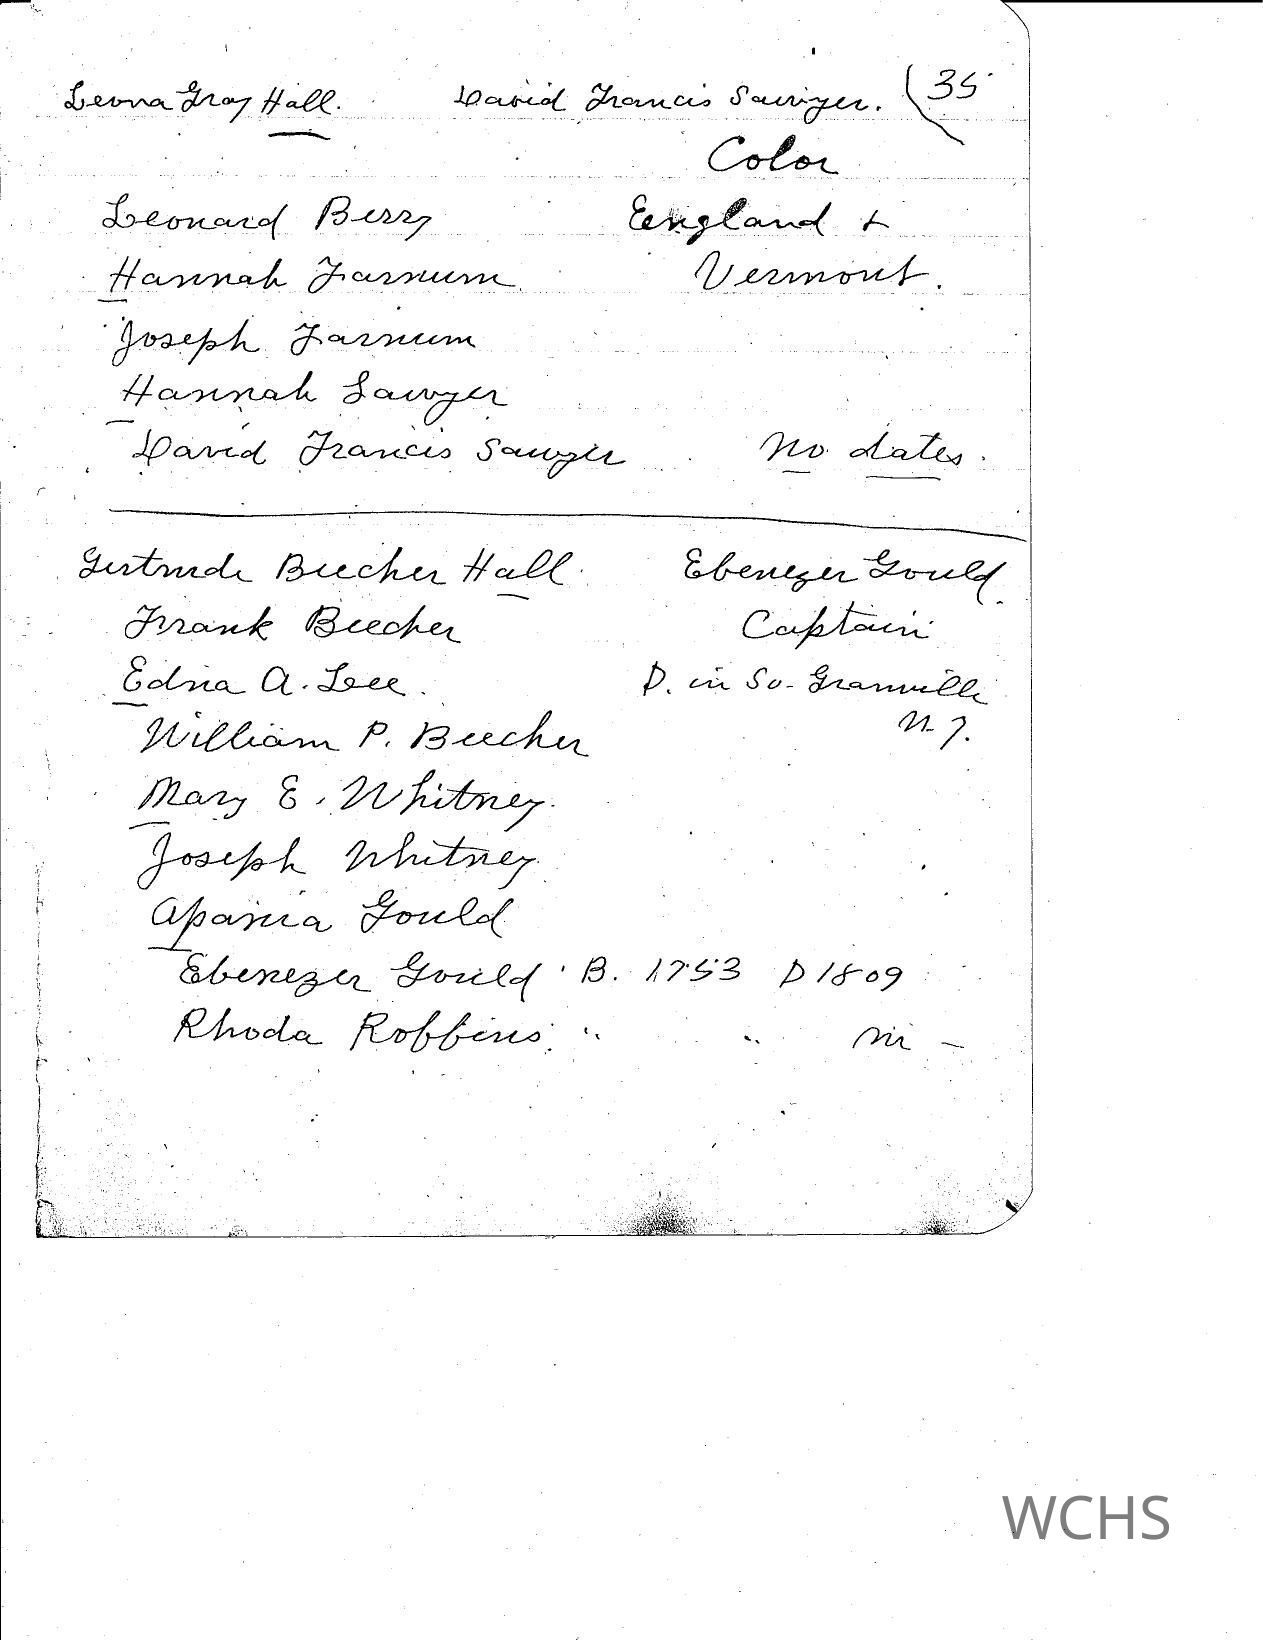 Leona Gray Hall. David Francis Sawyer. 35
Color
Leonard Berry Eengland +
Hannah Farnum Vermont.
Joseph Farnum
Hannah Sawyer
David Francis Sawyer no dates.
Gertrude Beecher Hall Ebenezer Gould.
Frank Beecher Captain
Edna A. Lee. D. in So. Granville
N.Y.
William P. Beecher
Mary E. Whitney.
Joseph Whitney
Gould
Ebenezer Gould B. 1753 D 1809
Rhoda Robbins " "
WCHS